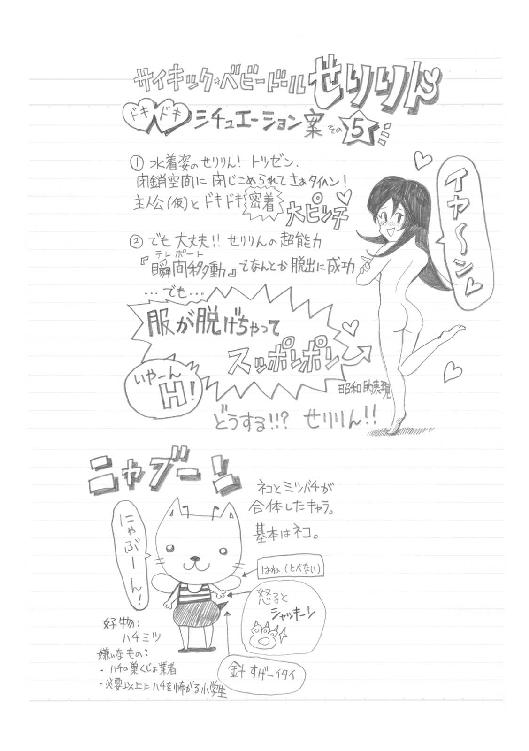 サイキック・ベビードール せりりん
ドキドキ シチュエーション案 その5
① 水着姿のせりりん! トツゼン、
閉鎖空間に閉じこめられてさぁタイヘン!
主人公(仮)とドキドキ密着 大ピンチ
② でも大丈夫!! せりりんの超能力
『瞬間移動』でなんとか脱出に成功
テレポート
…でも…
服が脱げちゃって
スッポンポン
いや〜んH!
昭和的表現
どうする!!? せりりん!!
イヤ〜ン
ニャブー!!
ネコとミツバチが
合体したキャラ。
基本はネコ。
にゃぶーん!
はね(とべない)
怒ると
シャッキーン
針 すげーイタイ
好物:
ハチミツ
嫌いなもの:
・ハチの巣くじょ業者
・必要以上にハチを怖がる小学生